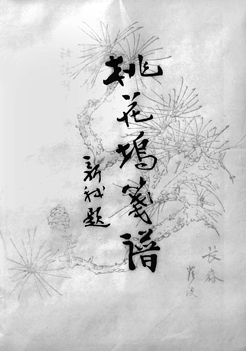 桃花塢箋譜
新我題
長春